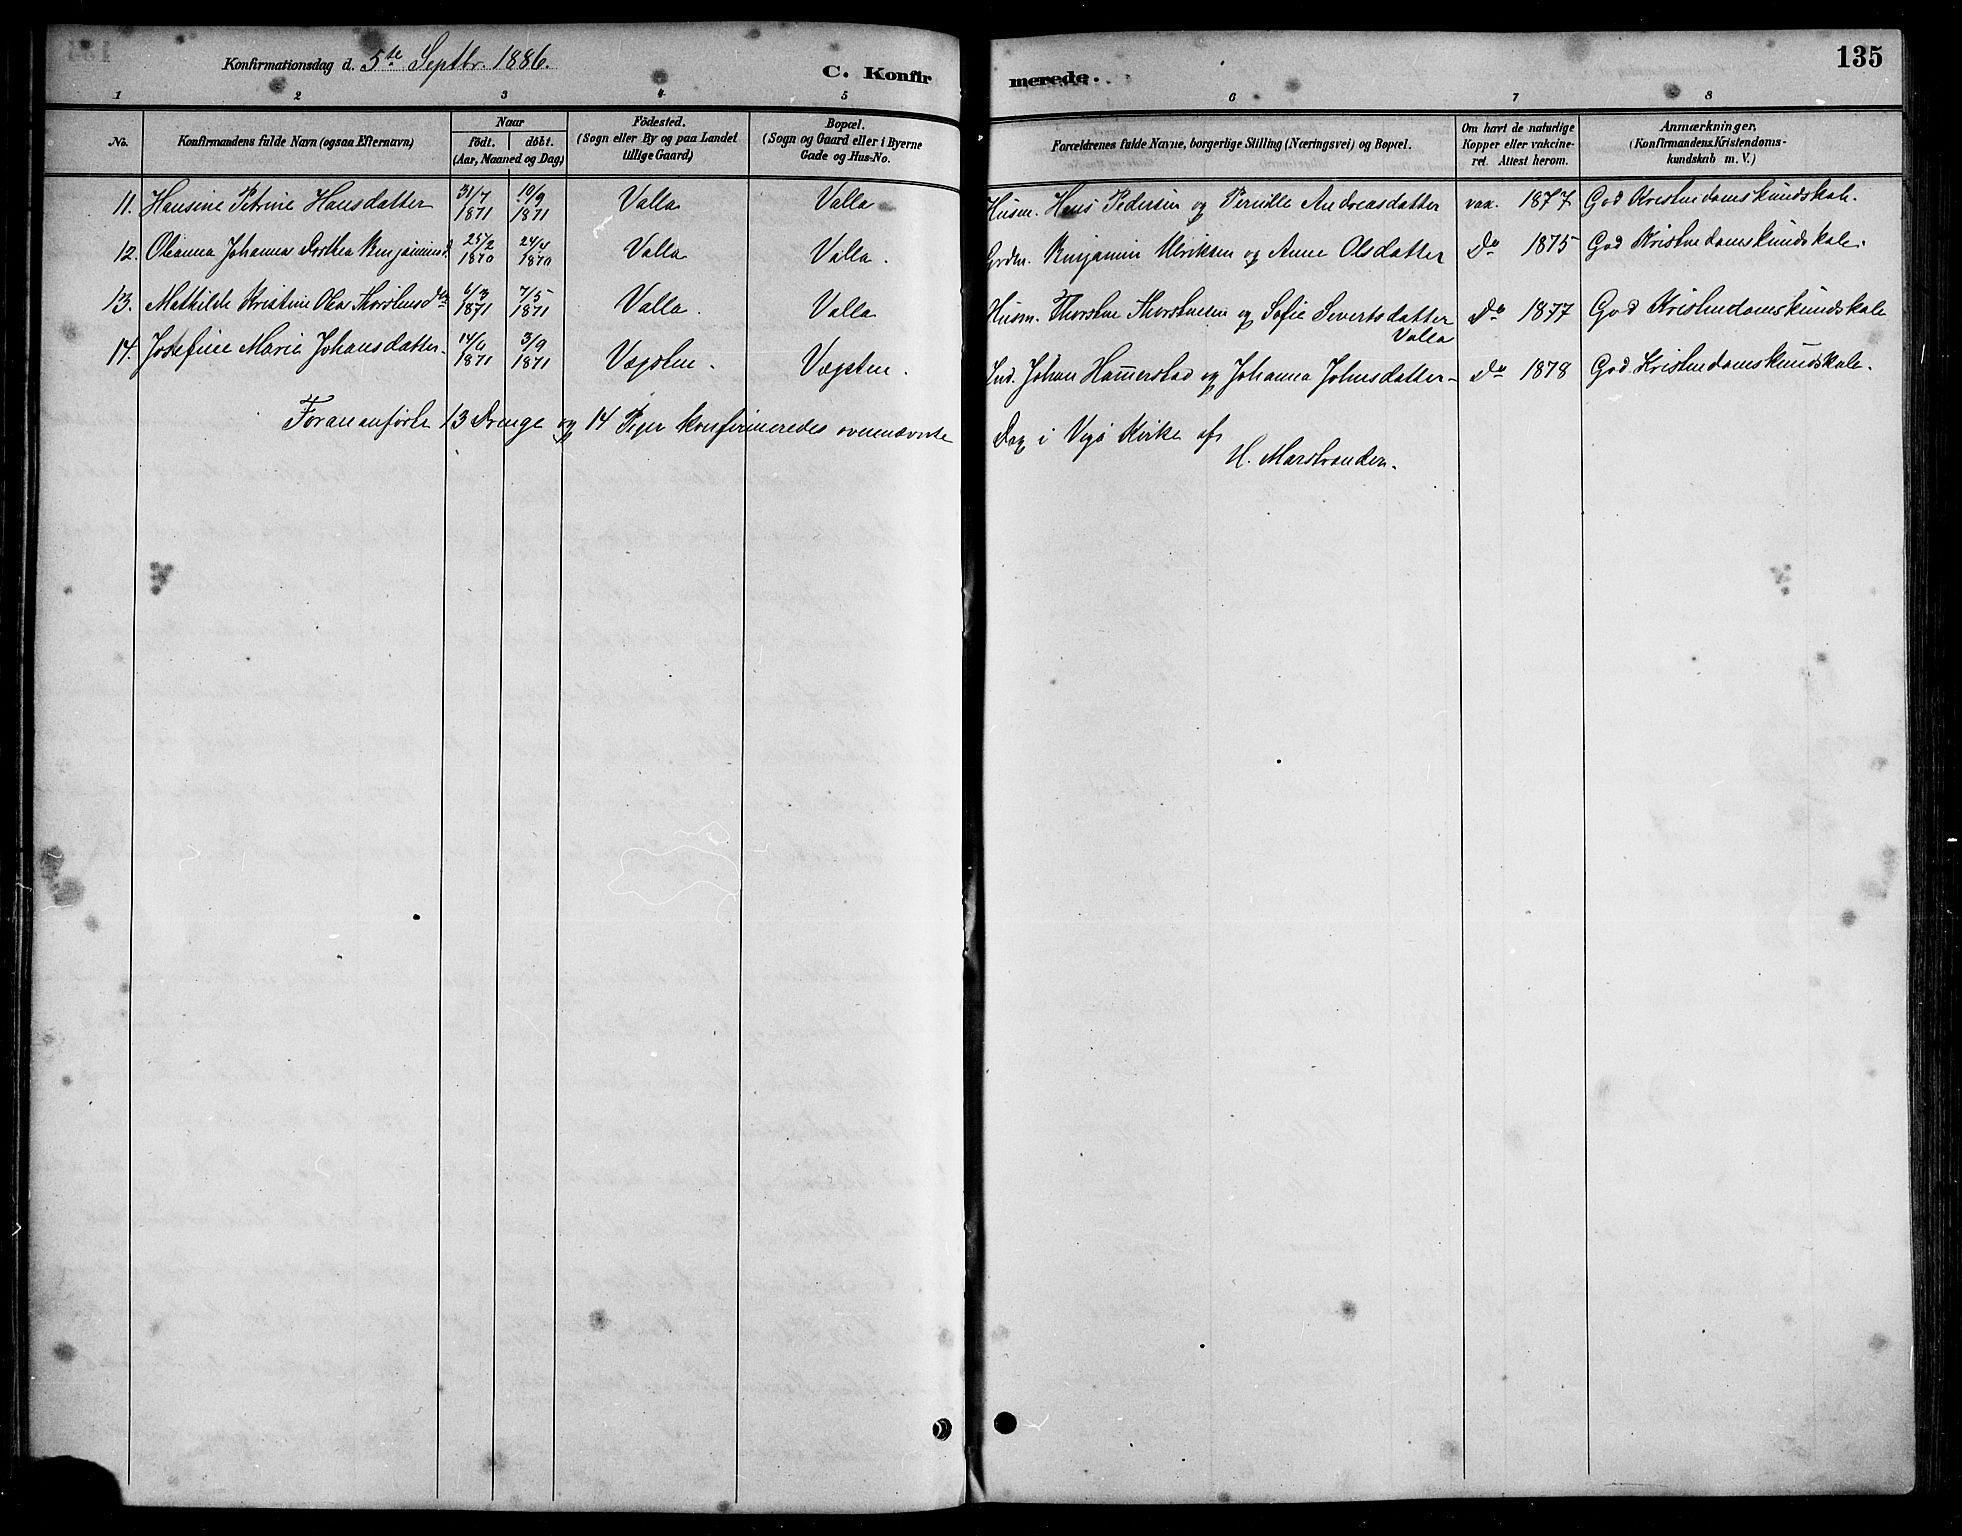 Konfirmationsdag d. 5te Septbr. 1886.
C. Konfirmerede.
135
1 2 3 4 5 6 7 8
No.
Konfirmandens fulde Navn (ogsaa Efternavn)
Naar
födt. döbt.
(Aar, Maaned og Dag)
Födested.
(Sogn eller By og paa Landet
tillige Gaard)
Bopæl.
(Sogn og Gaard eller i Byerne
Gade og Hus-No.
Forældrenes fulde Navne, borgerlige Stilling (Næringsvei) og Bopæl.
Om havt de naturlige
Kopper eller vakcine-
ret. Attest herom.
Anmærkninger.
(Konfirmandens Kristendoms-
kundskab m. V.)
11. Hansine Petrine Hansdatter 31/7 1871 10/9 1871 Valla Valla Husm. Hans Pedersen og Pernille Andreasdatter vax. 1877 God Kristendomskundskab.
12. Oleanna Johanna Dorthea Benjaminsd. 25/2 1870 24/4 1870 Valla Valla. Grdm. Benjamin Ulriksen og Anne Olsdatter do 1875 God Kristendomskundskab.
13. Mathilde Kristine Olea Thorstensdtr 6/3 1871 7/5 1871 Valla. Valla Husm. Thorsten Thorstensen og Sofie Sivertsdatter do 1877 God Kristendomskundskab
Valla
14. Josefine Marie Johansdatter. 14/6 1871 3/9 1871 Vægsten. Vægsten. Ind. Johan Hammerstad og Johanna Johnsdatter do 1878 God Kristendomskundskab.
Foran anførte 13 Drenge og 14 Piger konfirmeredes ovennævnte
Dag i Vegø Kirke af
H. Marstrander.